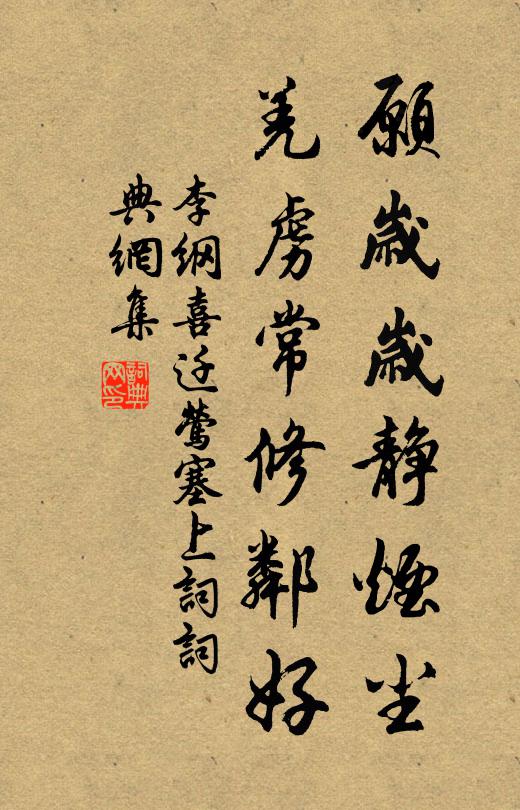 願歲歲靜煙尘
羌虜常修鄰好
李綱喜迁鶯塞上詞詞
典網集
詞典网印